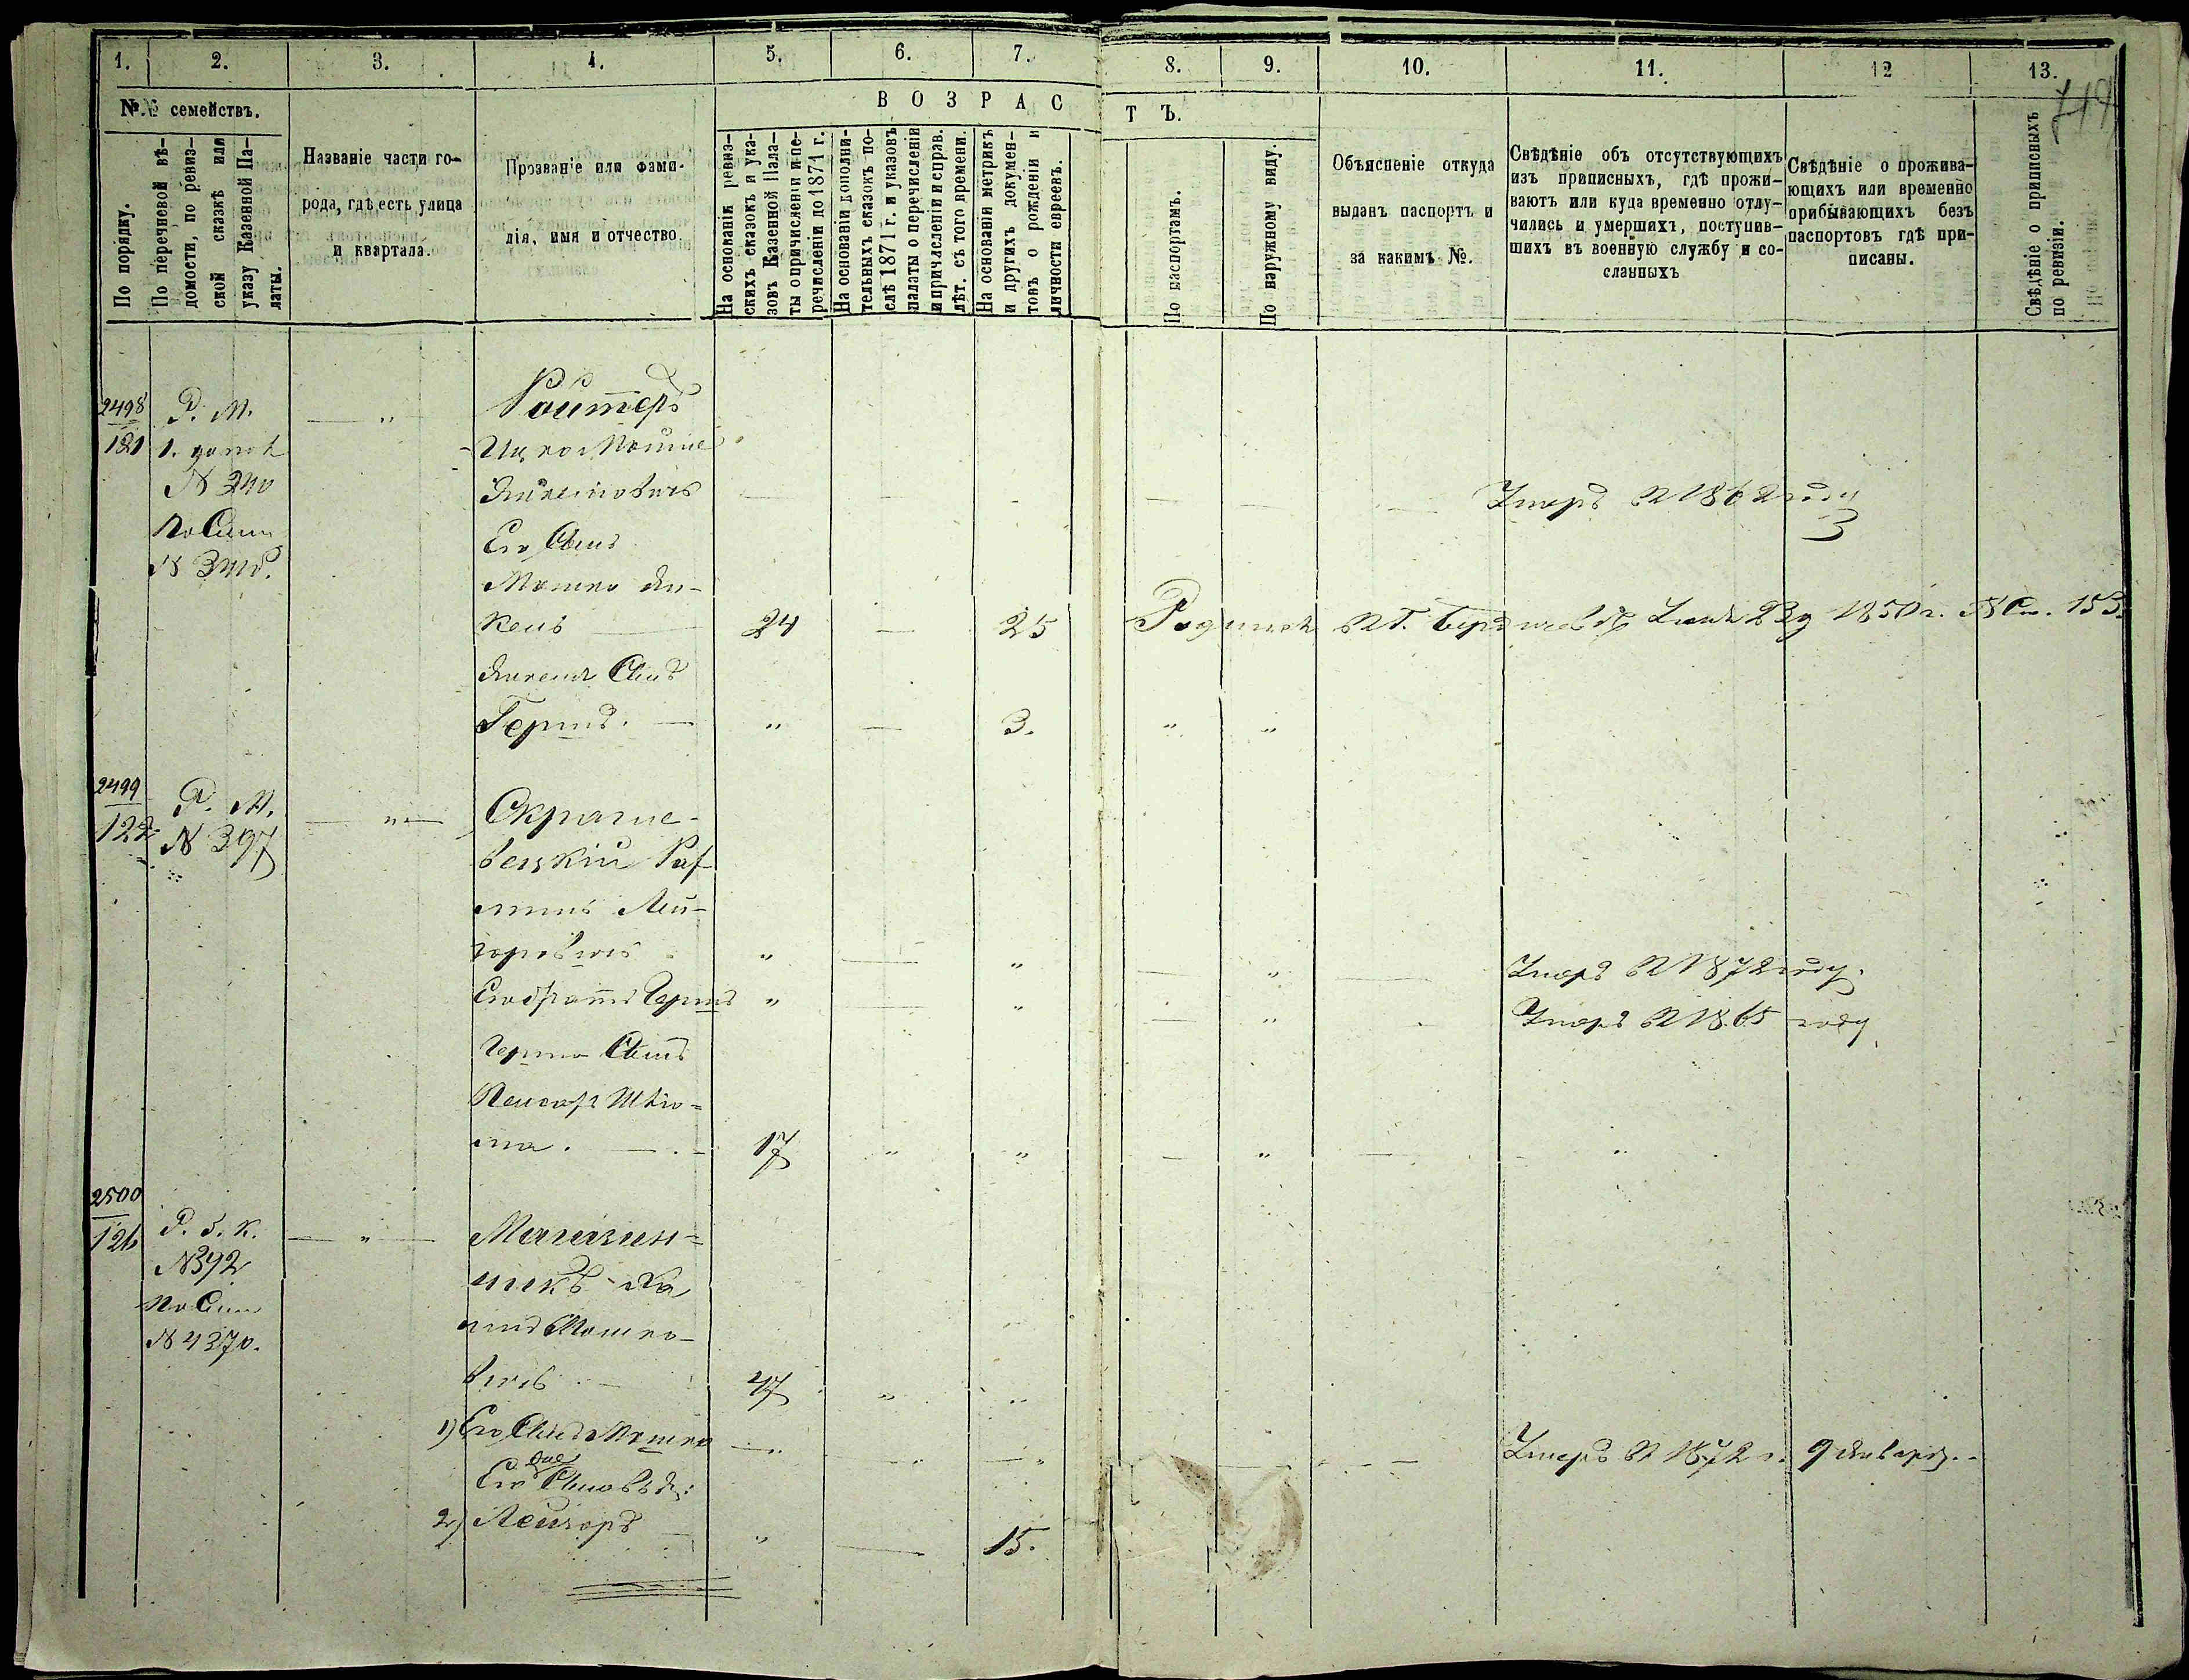 1. 2. 3. 4. 5. 6. 7. 8. 9. 10. 11. 12 13.
749
№№ семействъ.
По порядку.
По перечневой вѣ-
домости, по ревиз-
ской сказкѣ или
указу Казенной Па-
латы.
Названіе части го-
рода, гдѣ есть улица
и квартала.
Прозваніе или фами-
лія, имя и отчество.
ВОЗРАСТЪ.
На основаніи ревиз-
скихъ сказокъ и ука-
зовъ Казенной Пала-
ты о причисленіи и пе-
речисленіи до 1871 г.
На основаніи дополни-
тельныхъ сказокъ по-
слѣ 1871 г. и указовъ
палаты о перечисленіи
и причисленіи и справ.
лѣт. съ того времени.
На основаніи метрикъ
и другихъ докумен-
товъ о рожденіи и
личности евреевъ.
По паспортамъ.
По наружному виду.
Объясненіе откуда
выданъ паспортъ и
за какимъ №.
Свѣдѣніе объ отсутствующихъ
изъ приписныхъ, гдѣ прожи-
ваютъ или куда временно отлу-
чились и умершихъ, поступив-
шихъ въ военную службу и со-
сланныхъ
Свѣдѣніе о прожива-
ющихъ или временно
прибывающихъ безъ
паспортовъ гдѣ при-
писаны.
Свѣдѣніе о приписныхъ
по ревизіи.
2498 Р. М. — " Ройтеръ
121 1. допол Ицко Мойше
N 240 Янкелевичъ — — - — — — Умеръ в 1862 году
3
По Спис Его Сынъ
N 341 Мошко Ян-
кель — 24 — 25 Родился в г. Бердичевѣ 1850 г. N 153.
Янкеля Сынъ
Гершъ. — " — 3. " "
2499 Р. М. — " — Скраглe-
122 N 397 вецкій
Лей-
зоровичъ " — " — " — Умеръ в 1872 году.
Его братъ Гершъ " — " — " - Умеръ в 1865 году
Герша Сынъ
Лейзоръ Шлio-
ма. — . — 17 " " — " — - "
2500
126 Р. б. к. — " — Магазин-
N 392 никъ Ха
По Спис имъ Мошко-
N 4370.
вичъ . — 47 " "
1) Его Сынъ Мошко — Умеръ в 1872 г. 9 Января.
Его два Сыновья:
2) Лейзоръ — " — 15.